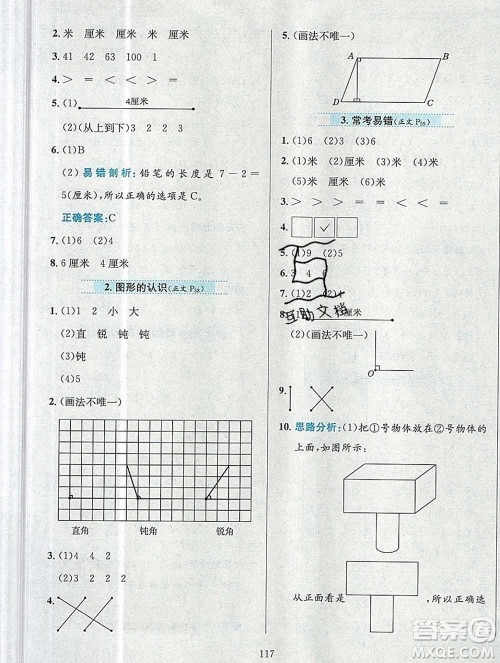 2. 米 厘米 厘米 米 厘米
3. 41 42 63 100 1
4. > = < = = >
5. (1) 4厘米
(2)(从上到下)3 2 2 3
6. (1)B
(2)易错剖析:铅笔的长度是 7-2=
5(厘米),所以正确的选项是 C。
正确答案:C
7. (1)6 (2)4
8. 6厘米 4厘米
2. 图形的认识(正文 P₉₈)
1. (1)1 2 小 大
(2)直 锐 钝 钝
(3)钝
(4)5
2. (画法不唯一)
直角 钝角 锐角
3. (1)4 4 2
(2)2 2 2 3
4.
5. (画法不唯一)
A B
D C
3. 常考易错(正文
1. (1)6 (2)3
2. (1)米 (2)厘米 (3)厘米 (4)米
(5)米
3. > > > < < =
4. ✓
5. (1)9 (2)5
6. 3 4
7. (1)2 (2)4
8.
互助文档
(2)(画法不唯一)
O
9.
10. 思路分析:(1)把①号物体放在②号物体的
上面,如图所示:
从正面看是 ,所以正确选
117
答案圈
MXQE.COM